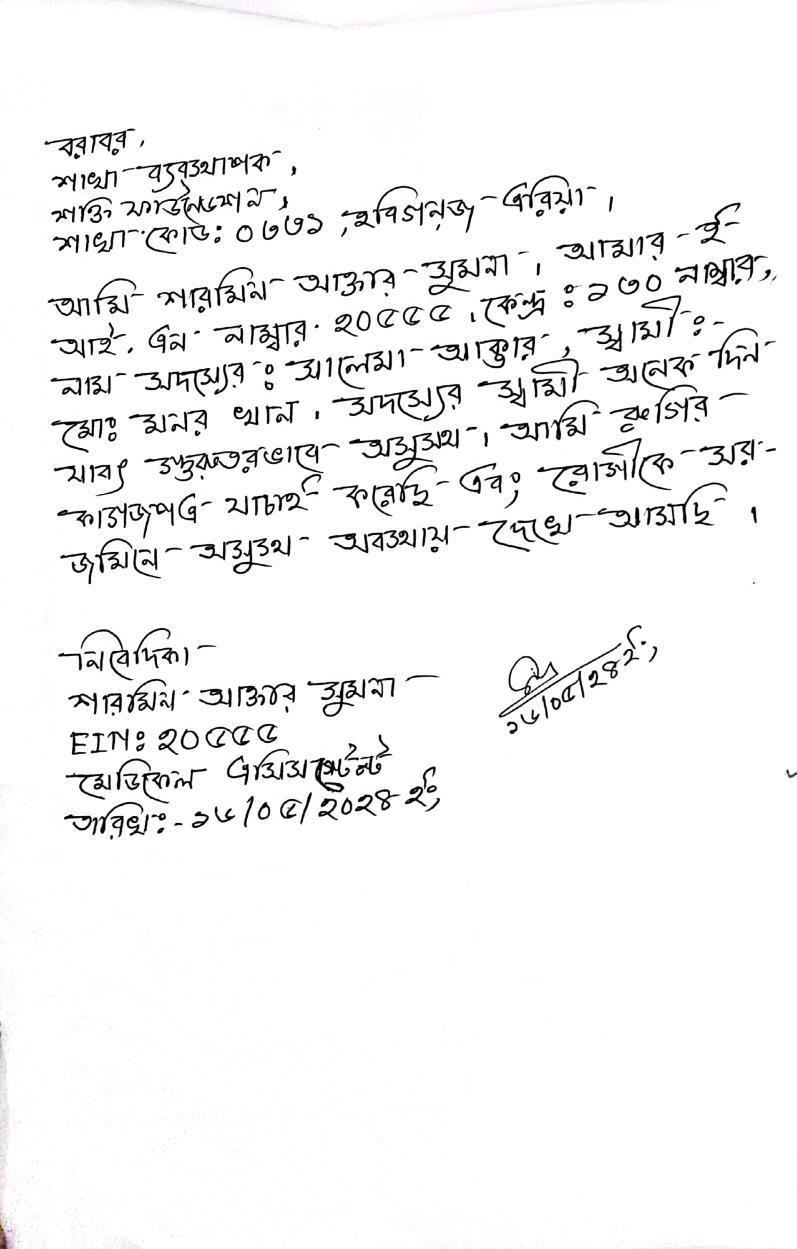 বরাবর,
শাখা ব্যবস্থাপক,
শক্তি ফাউন্ডেশন,
শাখা কোড: ০৬৬১, হবিগনজ এরিয়া।
আমি শারমিন আক্তার সুমনা। আমার ই-
আই. এন নাম্বার ২০৫৫৫। কেন্দ্র : ১৩০ নাম্বার,
নাম সদস্যের : সালেমা আক্তার, স্বামী :-
মোঃ মনর খান। সদস্যের স্বামী অনেক দিন
যাবৎ গুরুতরভাবে অসুস্থ। আমি রুগির
কাগজপত্র যাচাই করেছি এবং রোগীকে সর-
জমিনে অসুস্থ অবস্থায় দেখে আসছি।
নিবেদিকা
শারমিন আক্তার সুমনা
EIN: ২০৫৫৫
মেডিকেল এসিসটেন্ট
তারিখ:- ১৬/০৫/২০২৪ ইং,
১৬/০৫/২৪ ইং,